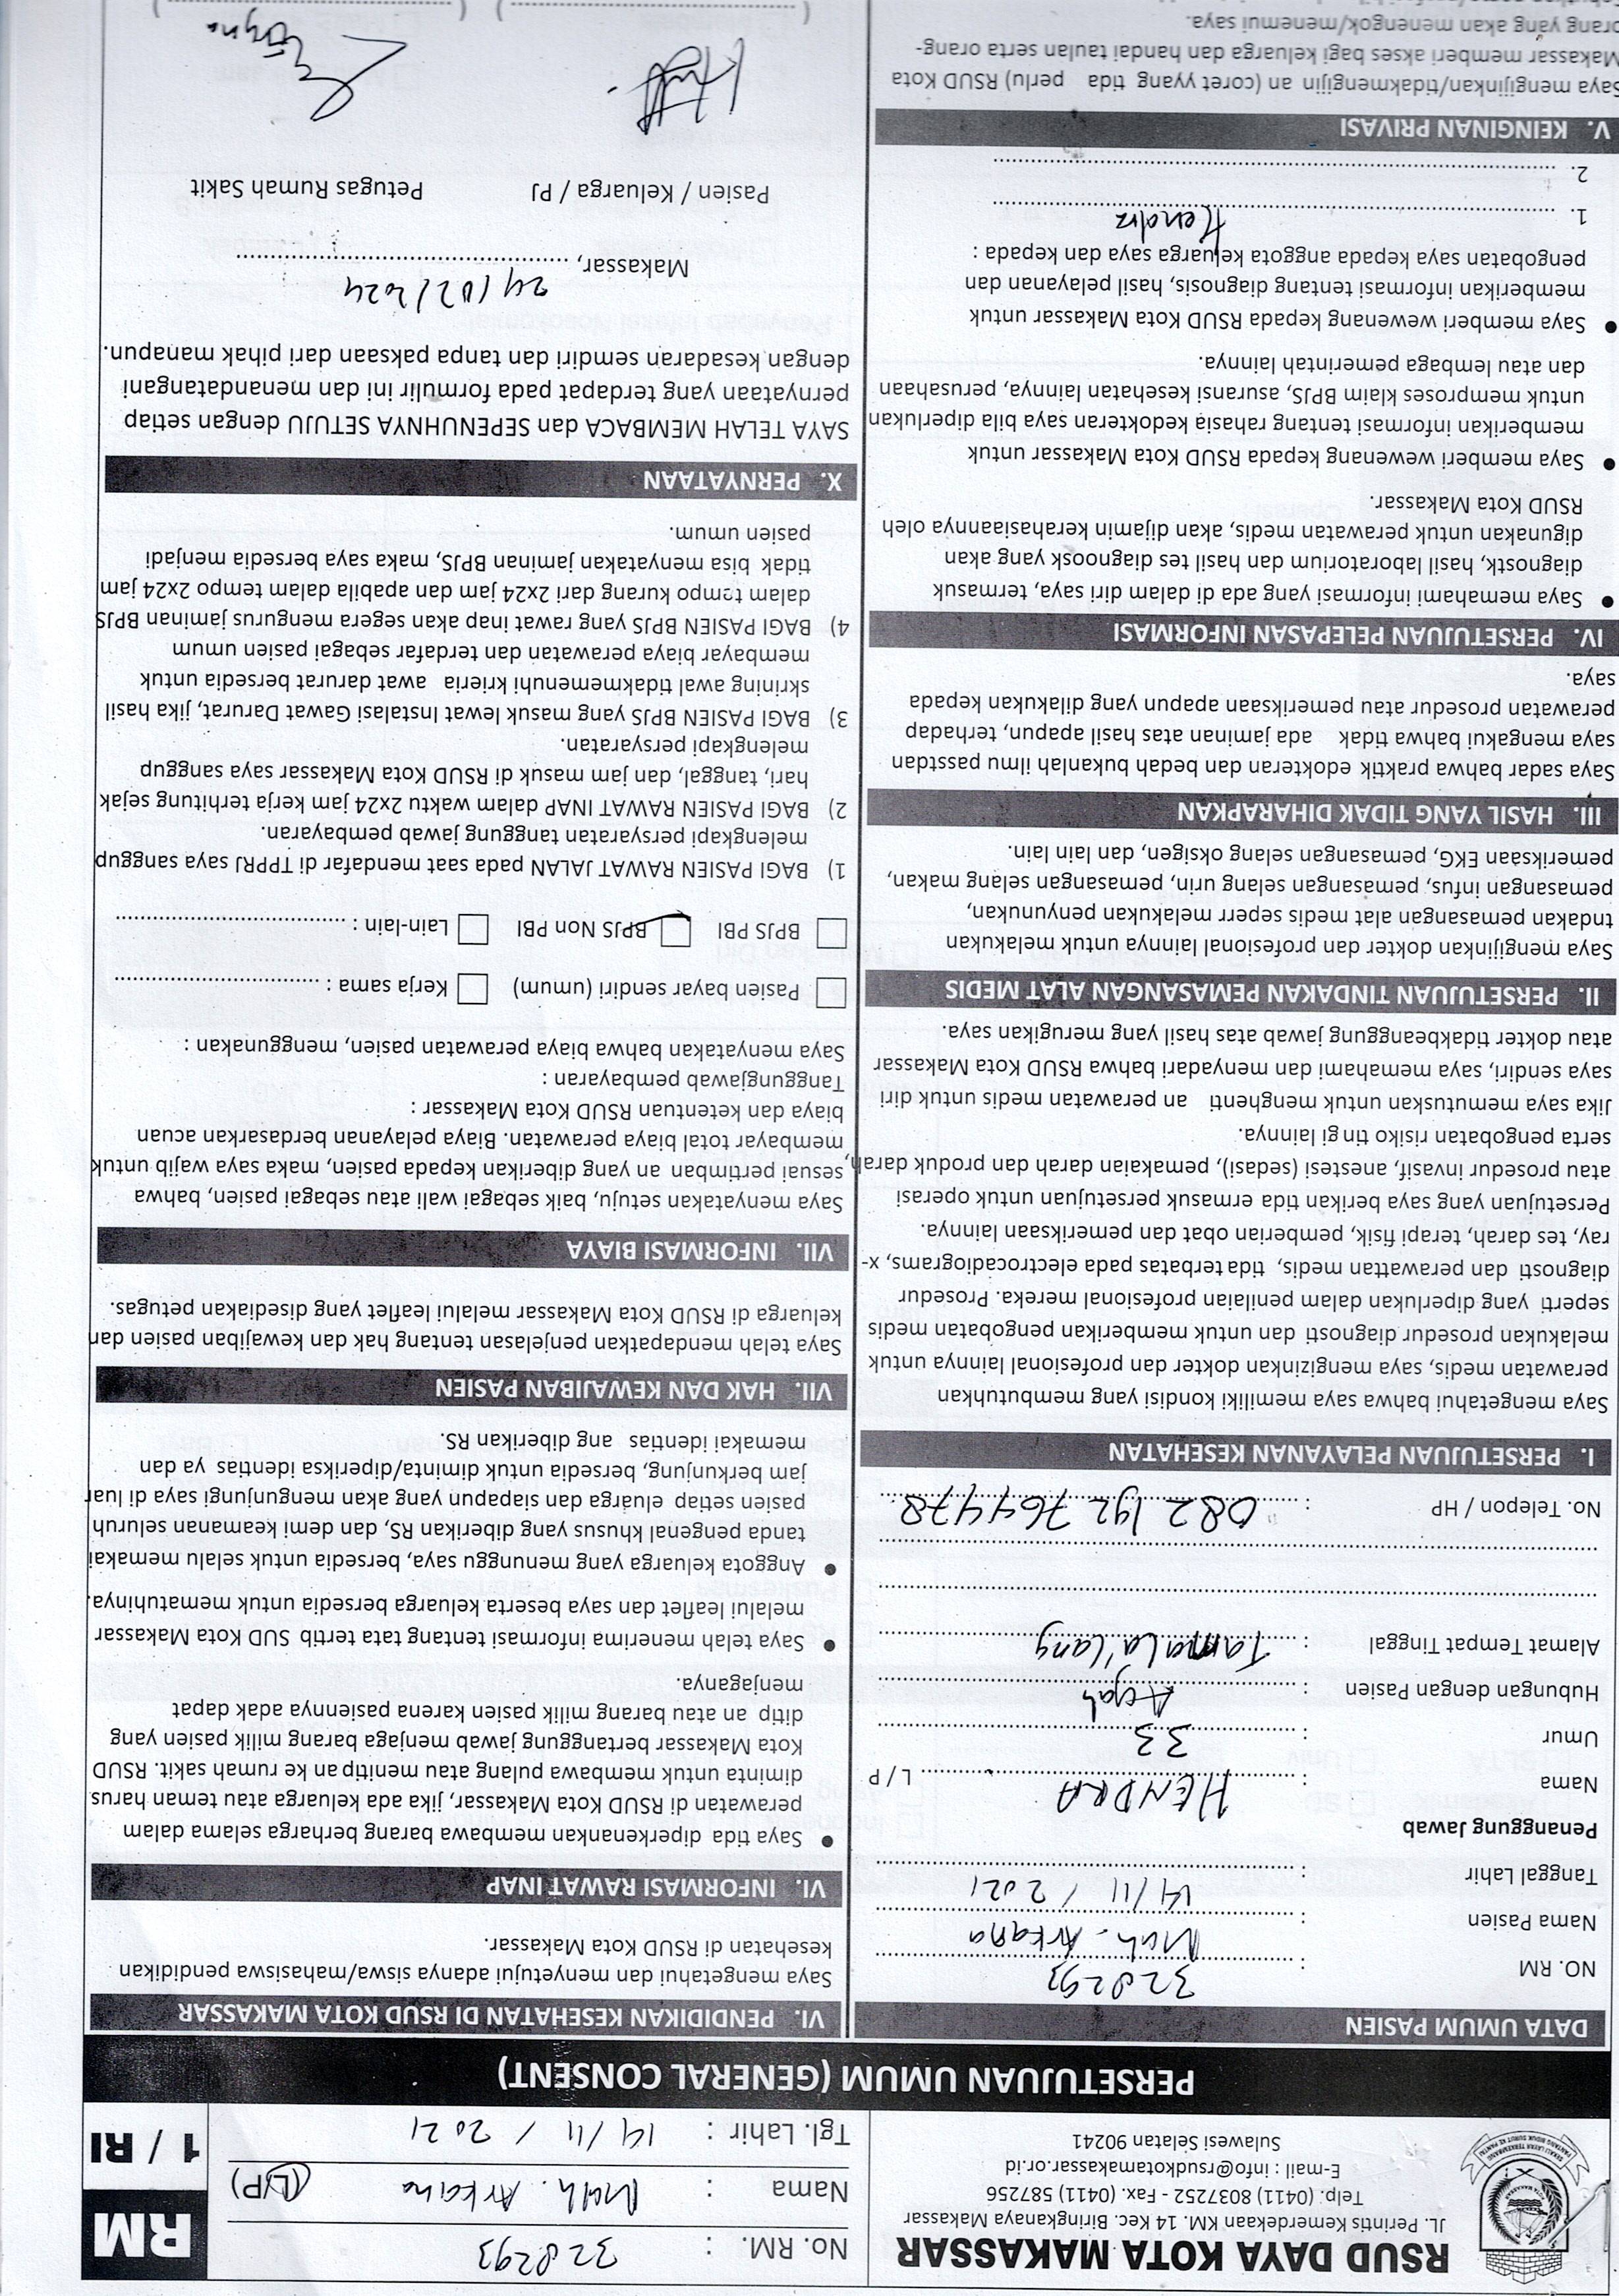 RSUD DAYA KOTA MAKASSAR
JL. Perintis Kemerdekaan KM. 14 Kec. Biringkanaya Makassar
Telp. (0411) 8037252 - Fax. (0411) 587256
E-mail : info@rsudkotamakassar.or.id
Sulawesi Selatan 90241
No. RM. : 328293
Nama : Muh. Arkana (L/P)
Tgl. Lahir : 14 / 11 / 2021
RM
1 / RI
PERSETUJUAN UMUM (GENERAL CONSENT)
DATA UMUM PASIEN
NO. RM : 328293
Nama Pasien : Muh. Arkana
Tanggal Lahir : 14/11 / 2021
Penanggung Jawab
Nama : HENDRA L / P
Umur : 33
Hubungan dengan Pasien : Ayah
Alamat Tempat Tinggal : Tamala'lang
No. Telepon / HP : 082 192 764478
I. PERSETUJUAN PELAYANAN KESEHATAN
Saya mengetahui bahwa saya memiliki kondisi yang membutuhkan
perawatan medis, saya mengizinkan dokter dan profesional lainnya untuk
melakukan prosedur diagnosti dan untuk memberikan pengobatan medis
seperti yang diperlukan dalam penilaian profesional mereka. Prosedur
diagnosti dan perawattan medis, tida terbatas pada electrocadiograms, x-
ray, tes darah, terapi fisik, pemberian obat dan pemeriksaan lainnya.
Persetujuan yang saya berikan tida ermasuk persetujuan untuk operasi
atau prosedur invasif, anestesi (sedasi), pemakaian darah dan produk darah,
serta pengobatan risiko tin gi lainnya.
Jika saya memutuskan untuk menghenti an perawatan medis untuk diri
saya sendiri, saya memahami dan menyadari bahwa RSUD Kota Makassar
atau dokter tidakbeanggung jawab atas hasil yang merugikan saya.
II. PERSETUJUAN TINDAKAN PEMASANGAN ALAT MEDIS
Saya mengijinkan dokter dan profesional lainnya untuk melakukan
tndakan pemasangan alat medis seperr melakukan penyunukan,
pemasangan infus, pemasangan selang urin, pemasangan selang makan,
pemeriksaan EKG, pemasangan selang oksigen, dan lain lain.
III. HASIL YANG TIDAK DIHARAPKAN
Saya sadar bahwa praktik edokteran dan bedah bukanlah ilmu passtdan
saya mengakui bahwa tidak ada jaminan atas hasil apapun, terhadap
perawatan prosedur atau pemeriksaan apapun yang dilakukan kepada
saya.
IV. PERSETUJUAN PELEPASAN INFORMASI
• Saya memahami informasi yang ada di dalam diri saya, termasuk
diagnostk, hasil laboratorium dan hasil tes diagnoosk yang akan
digunakan untuk perawatan medis, akan dijamin kerahasiaannya oleh
RSUD Kota Makassar.
• Saya memberi wewenang kepada RSUD Kota Makassar untuk
memberikan informasi tentang rahasia kedokteran saya bila diperlukan
untuk memproses klaim BPJS, asuransi kesehatan lainnya, perusahaan
dan atau lembaga pemerintah lainnya.
• Saya memberi wewenang kepada RSUD Kota Makassar untuk
memberikan informasi tentang diagnosis, hasil pelayanan dan
pengobatan saya kepada anggota keluarga saya dan kepada :
1. Hendra
2.
V. KEINGINAN PRIVASI
Saya mengijinkan/tidakmengijin an (coret yyang tida perlu) RSUD Kota
Makassar memberi akses bagi keluarga dan handai taulan serta orang-
orang yang akan menengok/menemui saya.
VI. PENDIDIKAN KESEHATAN DI RSUD KOTA MAKASSAR
Saya mengetahui dan menyetujui adanya siswa/mahasiswa pendidikan
kesehatan di RSUD Kota Makassar.
VI. INFORMASI RAWAT INAP
• Saya tida diperkenankan membawa barang berharga selama dalam
perawatan di RSUD Kota Makassar, jika ada keluarga atau teman harus
diminta untuk membawa pulang atau menitip an ke rumah sakit. RSUD
Kota Makassar bertanggung jawab menjaga barang milik pasien yang
ditip an atau barang milik pasien karena pasiennya adak dapat
menjaganya.
• Saya telah menerima informasi tentang tata tertib SUD Kota Makassar
melalui leaflet dan saya beserta keluarga bersedia untuk mematuhinya.
• Anggota keluarga yang menunggu saya, bersedia untuk selalu memakai
tanda pengenal khusus yang diberikan RS, dan demi keamanan seluruh
pasien setiap eluarga dan siapapun yang akan mengunjungi saya di luar
jam berkunjung, bersedia untuk diminta/diperiksa identias ya dan
memakai identias ang diberikan RS.
VII. HAK DAN KEWAJIBAN PASIEN
Saya telah mendapatkan penjelasan tentang hak dan kewajiban pasien dan
keluarga di RSUD Kota Makassar melalui leaflet yang disediakan petugas.
VII. INFORMASI BIAYA
Saya menyatakan setuju, baik sebagai wali atau sebagai pasien, bahwa
sesuai pertimban an yang diberikan kepada pasien, maka saya wajib untuk
membayar total biaya perawatan. Biaya pelayanan berdasarkan acuan
biaya dan ketentuan RSUD Kota Makassar :
Tanggungjawab pembayaran :
Saya menyatakan bahwa biaya perawatan pasien, menggunakan :
Pasien bayar sendiri (umum) Kerja sama :
BPJS PBI BPJS Non PBI Lain-lain :
1) BAGI PASIEN RAWAT JALAN pada saat mendafar di TPPRJ saya sanggup
melengkapi persyaratan tanggung jawab pembayaran.
2) BAGI PASIEN RAWAT INAP dalam waktu 2x24 jam kerja terhitung sejak
hari, tanggal, dan jam masuk di RSUD Kota Makassar saya sanggup
melengkapi persyaratan.
3) BAGI PASIEN BPJS yang masuk lewat Instalasi Gawat Darurat, jika hasil
skrining awal tidakmemenuhi krieria awat darurat bersedia untuk
membayar biaya perawatan dan terdafar sebagai pasien umum
4) BAGI PASIEN BPJS yang rawat inap akan segera mengurus jaminan BPJS
dalam tempo kurang dari 2x24 jam dan apabila dalam tempo 2x24 jam
tidak bisa menyatakan jaminan BPJS, maka saya bersedia menjadi
pasien umum.
X. PERNYATAAN
SAYA TELAH MEMBACA dan SEPENUHNYA SETUJU dengan setiap
pernyataan yang terdapat pada formulir ini dan menandatangani
dengan kesadaran semdiri dan tanpa paksaan dari pihak manapun.
Makassar, 24/02/2024
Pasien / Keluarga / PJ Petugas Rumah Sakit